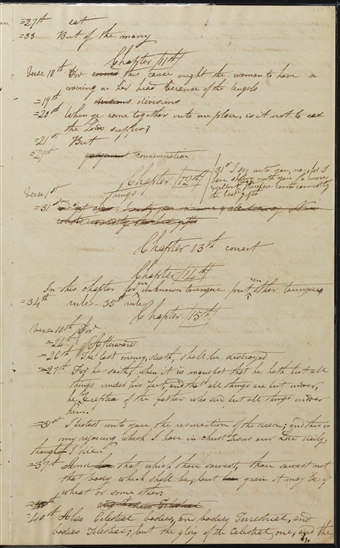 =27th eat
=33 But of the many
Chapter 11th
Verse 10th For this cause ought the woman to have a
covering on her head because of the angels
=19th divisions
=20th When ye come together into one place, is it not to eat
the Lords supper?
=21st But
=29th condemnation
Chapter 12th
Verse 1st things
=31st
31st I say unto you, nay, for I
have shown unto you a more
excellent way, therefore covet earnestly
the best gifts
Chapter 13th correct
Chapter 14th
In this chapter for unknown toungue put other toungue
=34th rule - 35th rule
Chapter 15th
Verse 10th for
=24th Afterward
=26th The last enemy, death, shall be destroyed
=27th For he saith, when it is manifest that he hath put all
things under his feet, and that all things are put under,
he is excepted of the father who did put all things under
him.
=31st I protest unto you the resurrection of the dead; and this is
my rejoicing which I have in Christ Jesus our Lord daily,
though I die.
=37th And that which thou sowest, thou sowest not
that body which shall be, but grain it may be of
wheat or some other:
=40th Also Celestial bodies, and bodies Terrestrial, and
bodies Telestial; but the glory of the Celestial, one; and the